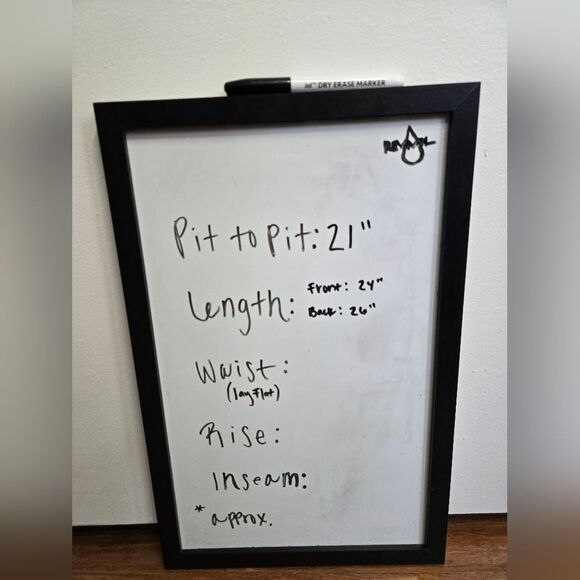 DRY ERASE MARKER
Pit to Pit: 21"
Length: Front: 24"
Back: 26"
Waist:
(lay flat)
Rise:
Inseam:
* approx.